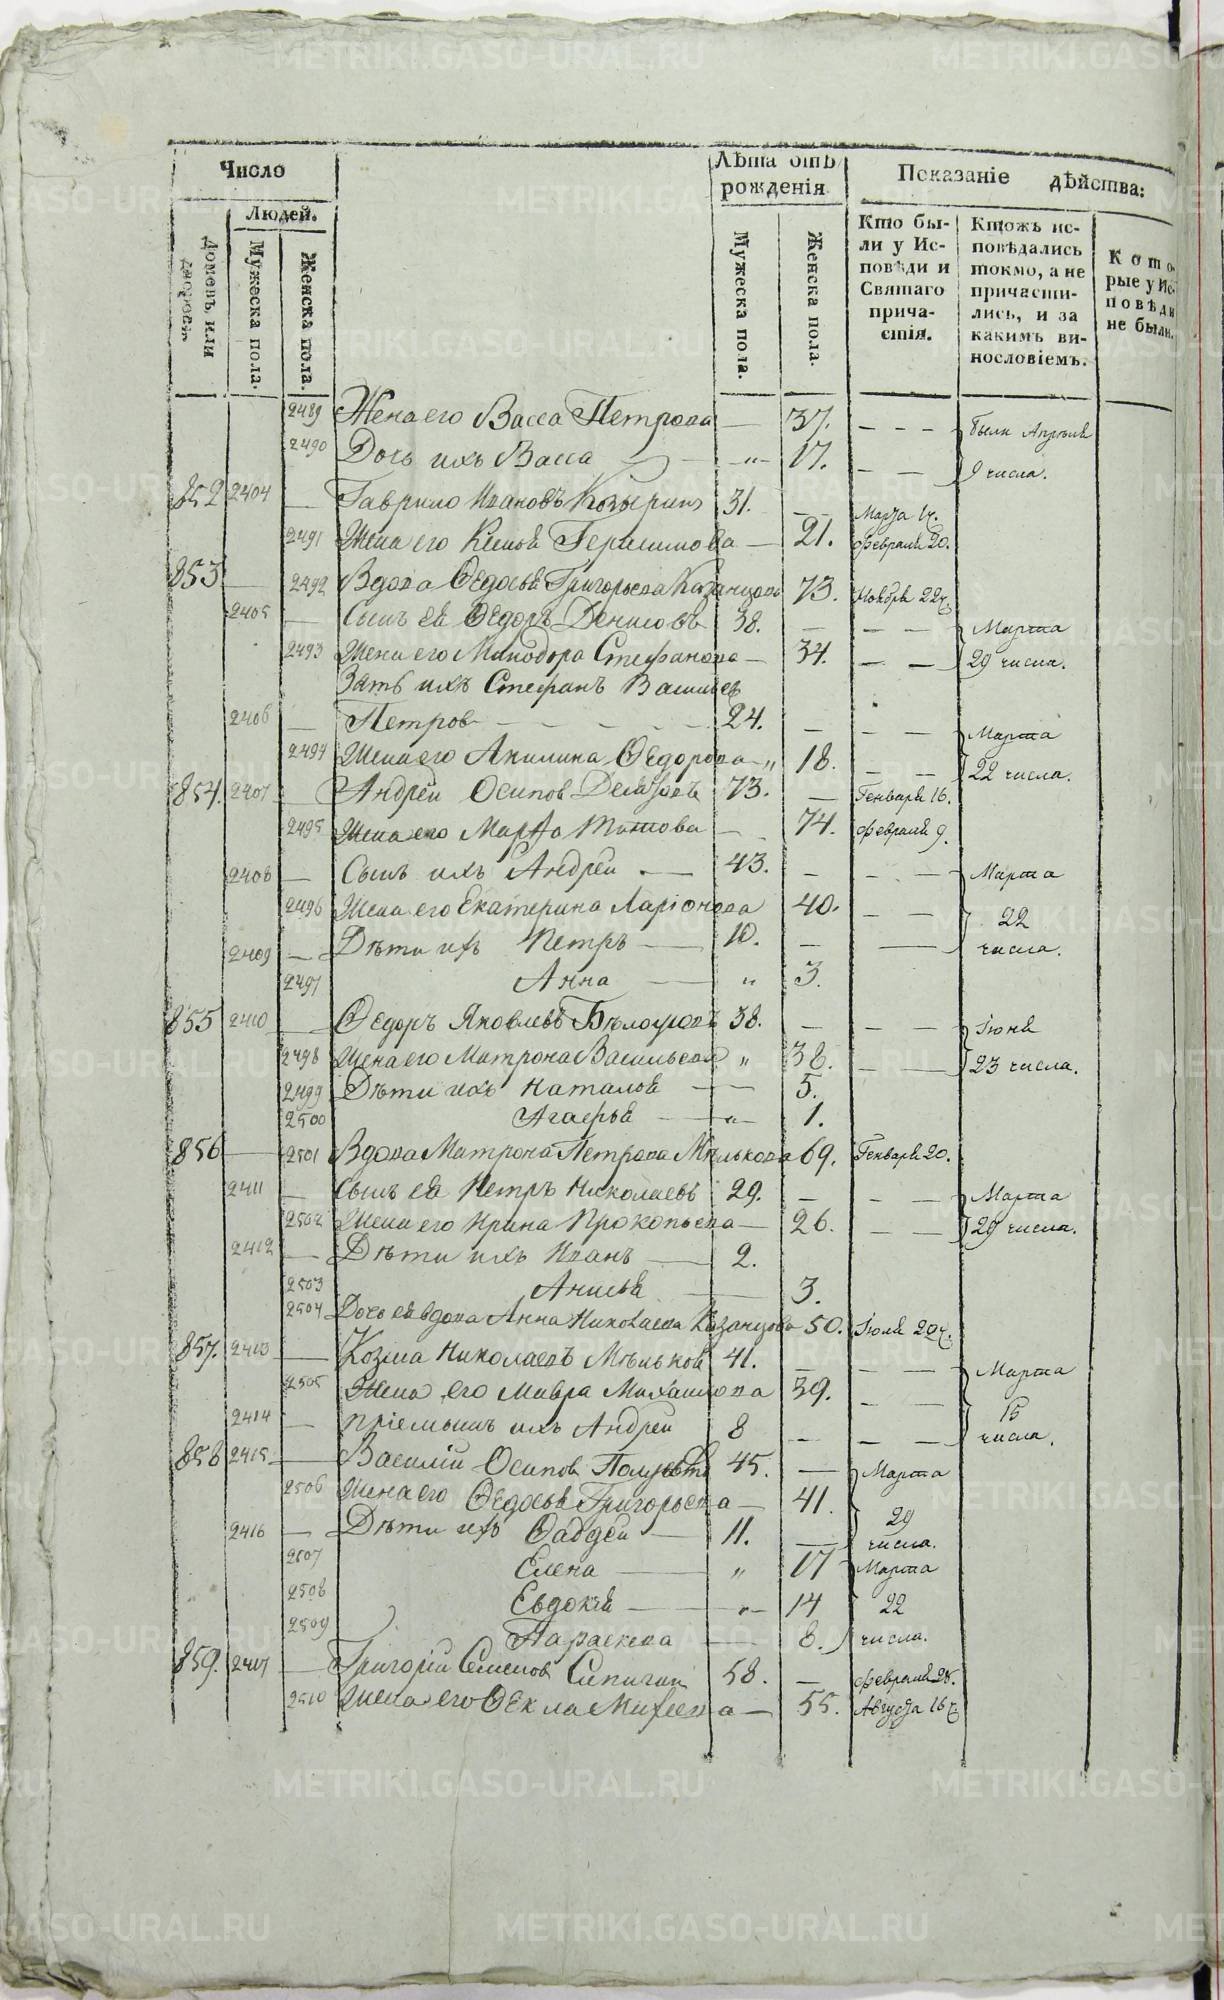 METRIKI.GASO-URAL.RU
Число
Людей.
Домовъ или дворовъ
Мужеска пола.
Женска пола.
Лѣта отъ рожденія
Мужеска пола.
Женска пола.
Показаніе дѣйства:
Кто бы-
ли у Ис-
повѣди и
Святаго
прича-
стія.
Ктожъ ис-
повѣдались
токмо, а не
причасти-
лись, и за
какимъ ви-
нословіемъ.
Кото-
рые у Ис-
повѣди
не были.
2489 Жена его Васса Петрова — 37. были Апрѣля
2490 Дочь ихъ Васса — „ — 17. 9 числа.
852 2404 — Гаврило Ивановъ 31. — Марта 14.
2491 Жена его Герасимова — 21. Февраля 20.
853 — 2492 Вдова Ѳедосья Григорьева Казанцова 73. Ноября 22
2405 — Сынъ ея Ѳедоръ Денисовъ 38. — Марта
2493 Жена его Минодора Стефанова — 34. 29 числа.
Зять ихъ Стефанъ Васильевъ
2406 — Петров 24. — Марта
2494 Жена его Акилина Ѳедорова „ 18. 22 числа.
854. 2407 — Андрей Осипов 73. — Генваря 16.
2495 Жена его Марѳа Титова — 74. Февраля 9.
2408 — Сынъ ихъ Андрей — 43. — Марта
2496 Жена его Екатерина Ларіонова 40. 22
2409 — Дѣти ихъ Петръ — 10. — числа.
2497 Анна — „ 3.
855 2410 — Ѳедоръ Яковлевъ 38. — Іюня
2498 Жена его Матрона Васильева „ 38. 23 числа.
2499 Дѣти ихъ Наталья — 5.
2500 Агафья — „ — 1.
856 — 2501 Вдова Матрона Петрова Мѣлькова 69. Генваря 20.
2411 — Сынъ ея Петръ Николаевъ 29. — Марта
2502 Жена его Ирина Прокопьева — 26. 29 числа.
2412 — Дѣти ихъ Иванъ — 2.
2503 Анисья — 3.
2504 Дочь ея вдова Анна Николаева Казанцова 50. Іюля 20
857. 2413 — Козма Николаевъ Мѣльков 41. — Марта
2505 Жена его Мавра Михайлова 39. 15
2414 — пріемышъ ихъ Андрей 8 — числа.
858 2415 — Василій Осипов 45. — Марта
2506 Жена его Ѳедосья Григорьева — 41. 29
2416 — Дѣти ихъ Ѳаддей — 11. — числа.
2507 Елена — „ 17 Марта
2508 Евдокія — „ — 14 22
2509 Параскева — 8. числа.
859. 2417 — Григорій Семенов 58. — Февраля 28.
2510 Жена его Ѳекла Михеева — 55. Августа 16